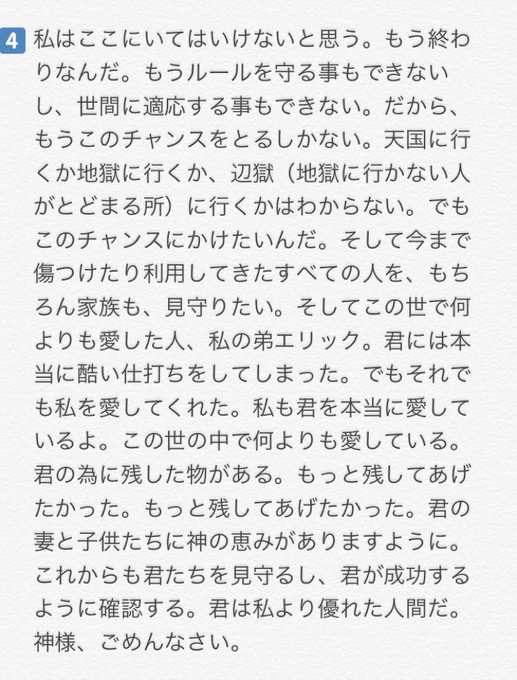 4 私はここにいてはいけないと思う。もう終わ
りなんだ。もうルールを守る事もできない
し、世間に適応する事もできない。だから、
もうこのチャンスをとるしかない。天国に行
くか地獄に行くか、辺獄（地獄に行かない人
がとどまる所）に行くかはわからない。でも
このチャンスにかけたいんだ。そして今まで
傷つけたり利用してきたすべての人を、もち
ろん家族も、見守りたい。そしてこの世で何
よりも愛した人、私の弟エリック。君には本
当に酷い仕打ちをしてしまった。でもそれで
も私を愛してくれた。私も君を本当に愛して
いるよ。この世の中で何よりも愛している。
君の為に残した物がある。もっと残してあげ
たかった。もっと残してあげたかった。君の
妻と子供たちに神の恵みがありますように。
これからも君たちを見守るし、君が成功する
ように確認する。君は私より優れた人間だ。
神様、ごめんなさい。